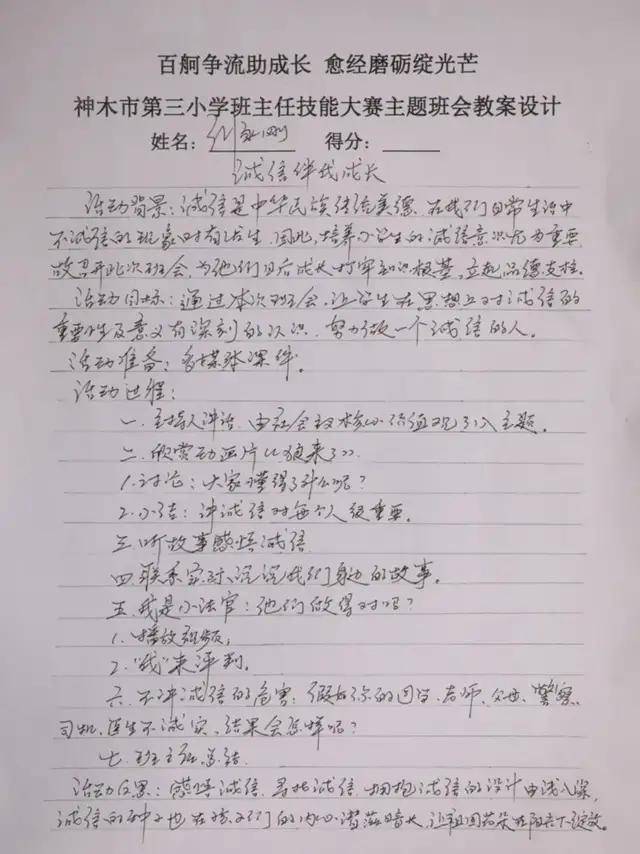 百舸争流助成长 愈经磨砺绽光芒
神木市第三小学班主任技能大赛主题班会教案设计
姓名： 得分：
诚信伴我成长
活动背景：诚信是中华民族传统美德，在我们日常生活中
不诚信的现象时有发生，因此，培养小学生的诚信意识尤为重要，
故召开此次班会，为他们日后成长打牢知识根基，立起品德支柱。
活动目标：通过本次班会，让学生在思想上对诚信的
重要性及意义有深刻的认识，努力做一个诚信的人。
活动准备：多媒体课件。
活动过程：
一．主持人讲话，由社会主义核心价值观引入主题。
二．欣赏动画片《狼来了》。
1．讨论：大家懂得了什么呢？
2．小结：讲诚信对每个人很重要。
三．听故事感悟诚信
四．联系实际，说说我们身边的故事。
五．我是小法官：他们做得对吗？
1．播放视频，
2．“我”来评判。
六．不讲诚信的危害：假如你的同学、老师、父母、警察、
司机、医生不诚实，结果会怎样呢？
七．班主任总结
活动反思：感悟诚信，寻找诚信，拥抱诚信的设计由浅入深，
诚信的种子也在孩子们的内心潜滋暗长，让祖国花朵在阳光下绽放。